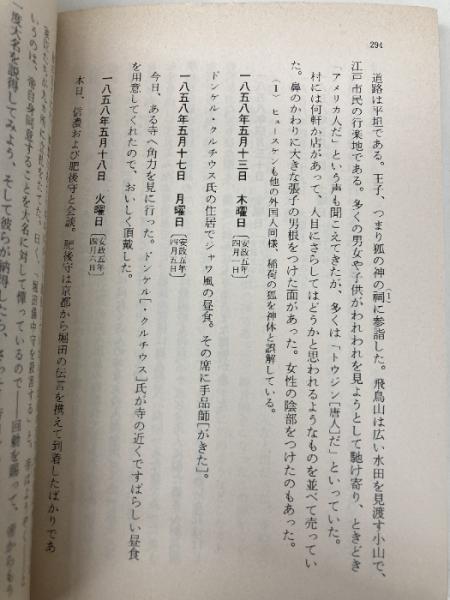 294
道路は平坦である。王子、つまり狐の神の祠に参詣した。飛鳥山は広い水田を見渡す小山で、
(1)
江戸市民の行楽地である。多くの男女や子供がわれわれを見ようとして馳け寄り、ときどき
「アメリカ人だ」という声も聞こえてきたが、多くは「トウジン[唐人]だ」といっていた。
村には何軒か店があって、人目にさらしてはどうかと思われるようなものを並べて売ってい
た。鼻のかわりに大きな張子の男根をつけた面があった。女性の陰部をつけたのもあった。
(1) ヒュースケンも他の外国人同様、稲荷の狐を神体と誤解している。
一八五八年五月十三日 木曜日[安政五年四月一日]
ドンケル・クルチウス氏の住居でジャワ風の昼食。その席に手品師[がきた]。
一八五八年五月十七日 月曜日[安政五年四月五日]
今日、ある寺へ角力を見に行った。ドンケル[・クルチウス]氏が寺の近くですばらしい昼食
を用意してくれたので、おいしく頂戴した。
一八五八年五月十八日 火曜日[安政五年四月六日]
本日、信濃および肥後守と会談。肥後守は京都から堀田の伝言を携えて到着したばかりであ
曰く、「堀田備中守を殺害する」と。
いうのは、帝自身同意することを大名に対して憚っているので――回勅を賜って、
一度大名を説得してみよう、そして彼らが納得したら、